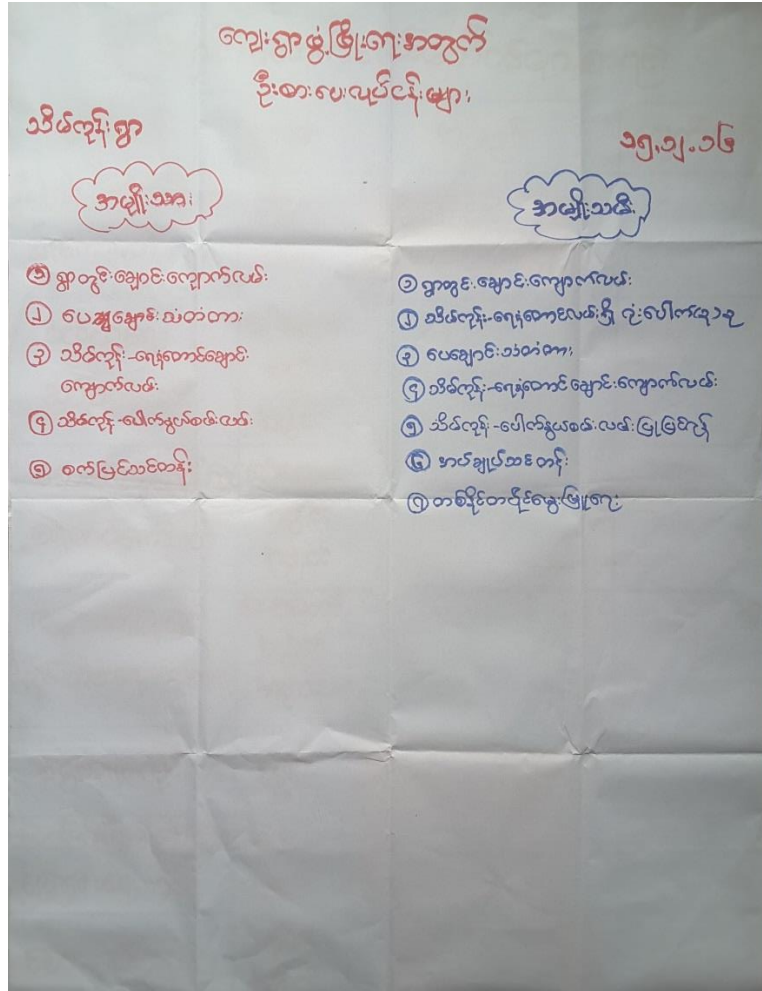 ကျေးရွာဖွံ့ဖြိုးရေးအတွက်
ဦးစားပေးလုပ်ငန်းများ
သိမ်ကုန်းရွာ
၁၅.၁၂.၁၆
အမျိုးသား
၁ ရွာတွင်းချောင်းကျောက်လမ်း
၂ ပေချောင်းသံတံတား
၃ သိမ်ကုန်း-ရေနံတောင်ချောင်း
ကျောက်လမ်း
၄ သိမ်ကုန်း-ပေါက်နွယ်စမ်းလမ်း
၅ စက်ပြင်သင်တန်း
အမျိုးသမီး
၁ ရွာတွင်းချောင်းကျောက်လမ်း
၂ သိမ်ကုန်း-ရေနံတောင်လမ်းရှိ ဂုံးပေါက်(၃)ခု
၃ ပေချောင်းသံတံတား
၄ သိမ်ကုန်း-ရေနံတောင်ချောင်းကျောက်လမ်း
၅ သိမ်ကုန်း-ပေါက်နွယ်စမ်းလမ်းပြုပြင်ရန်
၆ အပ်ချုပ်သင်တန်း
၇ တစ်နိုင်တပိုင်မွေးမြူရေး